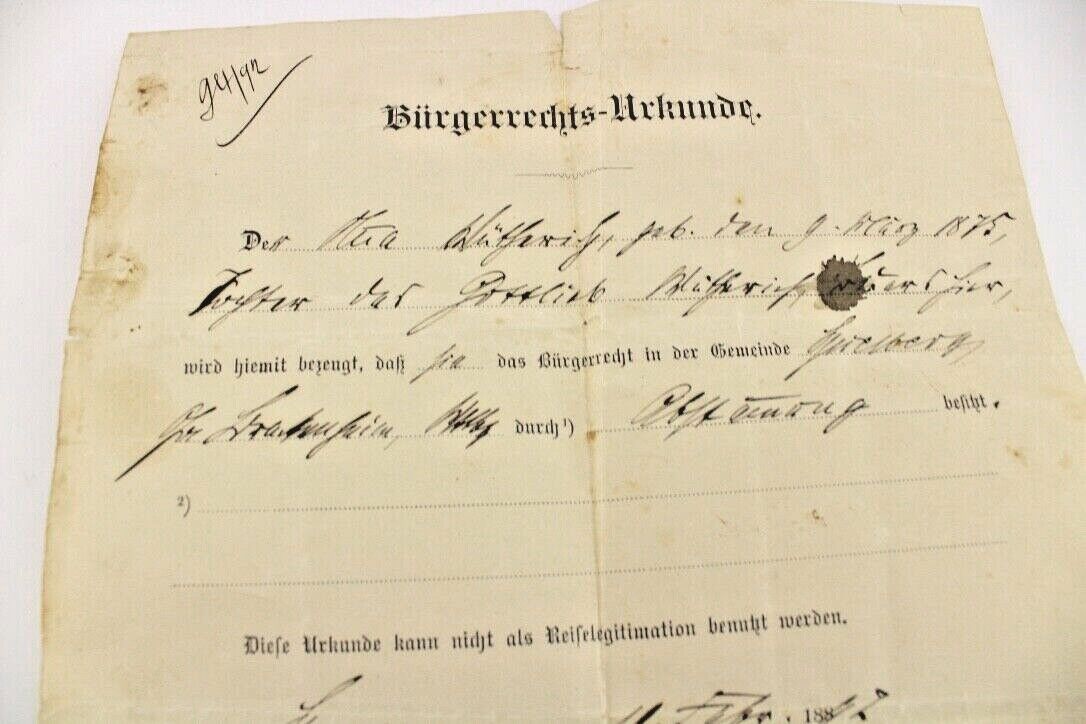 Bürgerrechts-Urkunde.
Der Wütherich, geb. den 9. März 1875,
Tochter des Gottlieb Wütherich, hier,
wird hiemit bezeugt, daß sie das Bürgerrecht in der Gemeinde Spielberg,
OA. Brackenheim, Wttbg durch ¹) Abstammung besitzt.
²)
Diese Urkunde kann nicht als Reiselegitimation benutzt werden.
Febr. 1892